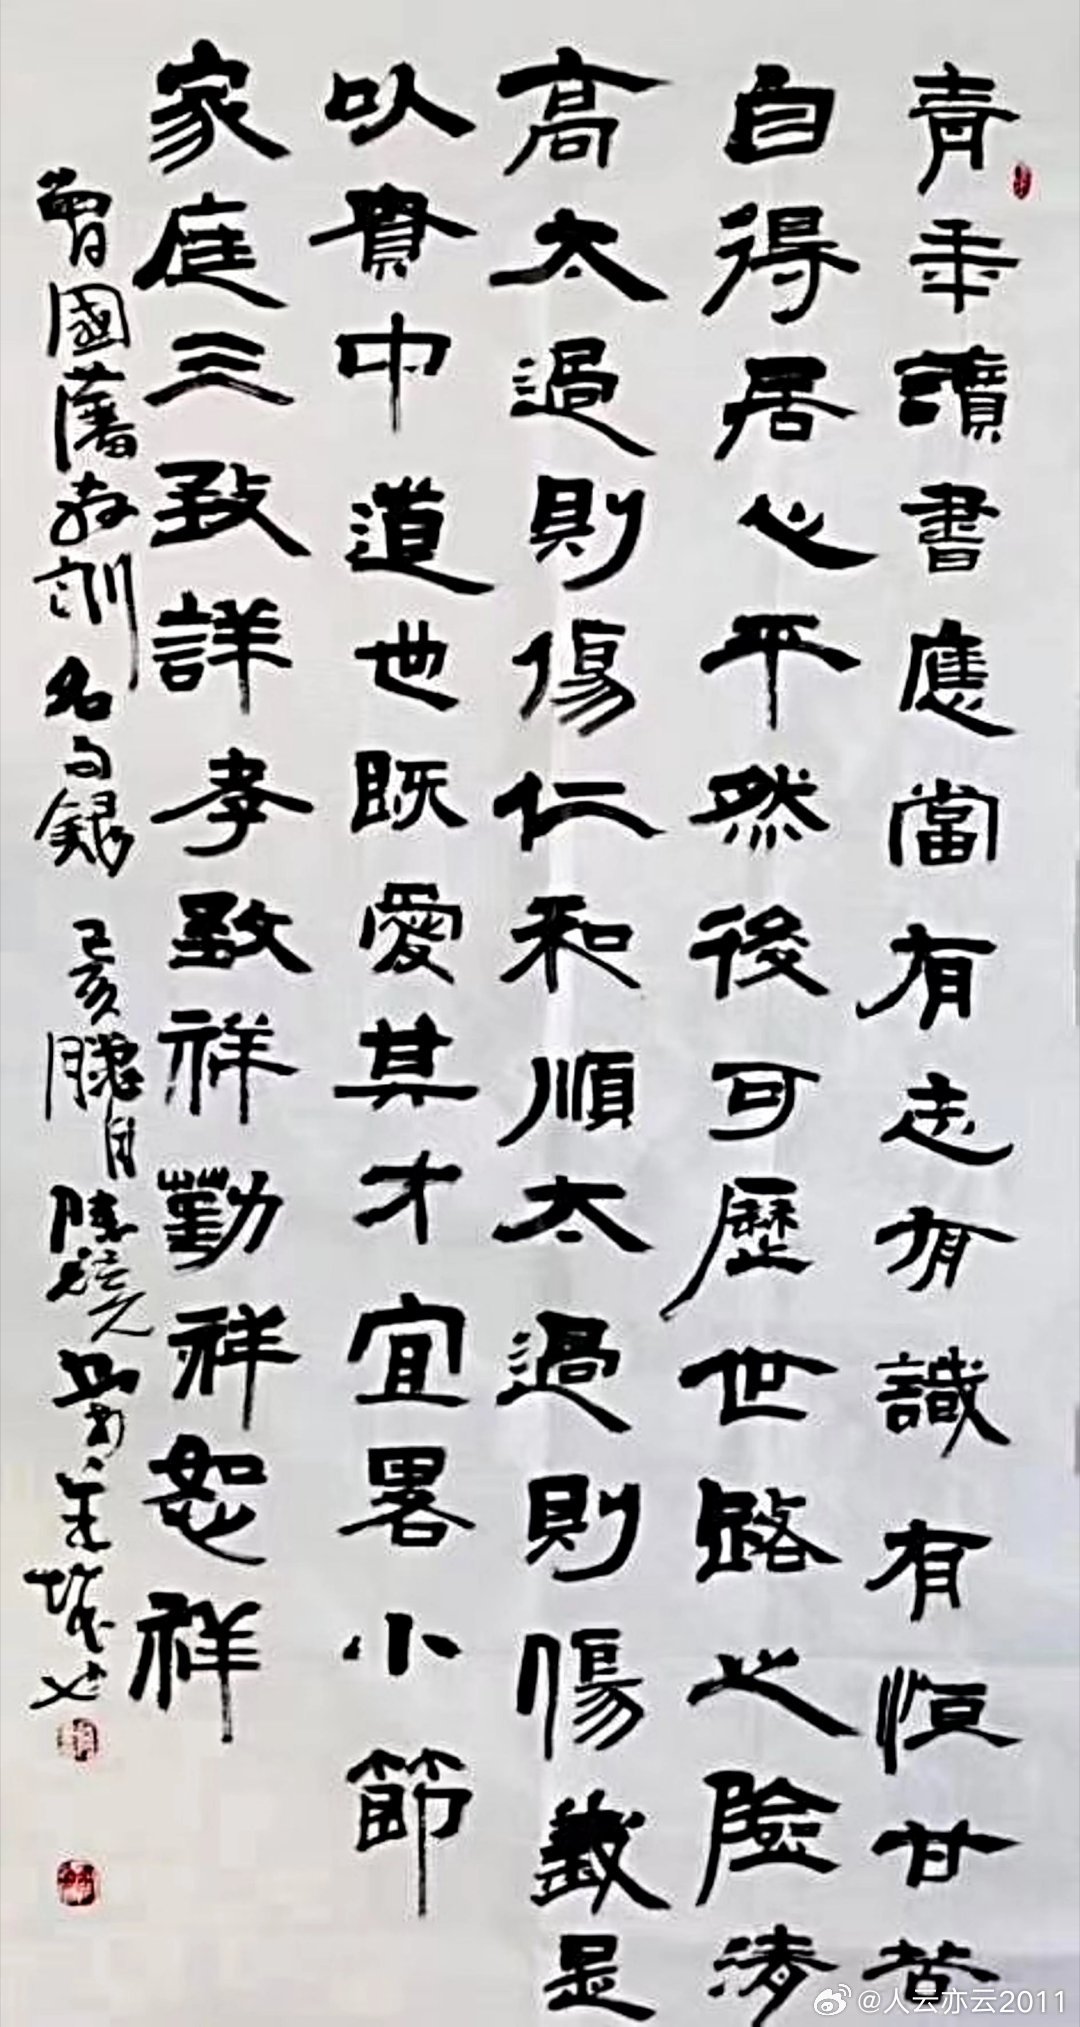 青年讀書應當有志有識有恒甘苦
自得居心平然後可歷世路之險清
高太過則傷仁和順太過則傷義是
以貴中道也既愛其才宜畧小節
家庭三致詳孝致祥勤祥恕祥
曾國藩教訓名句錄 己亥臘月
@人云亦云2011